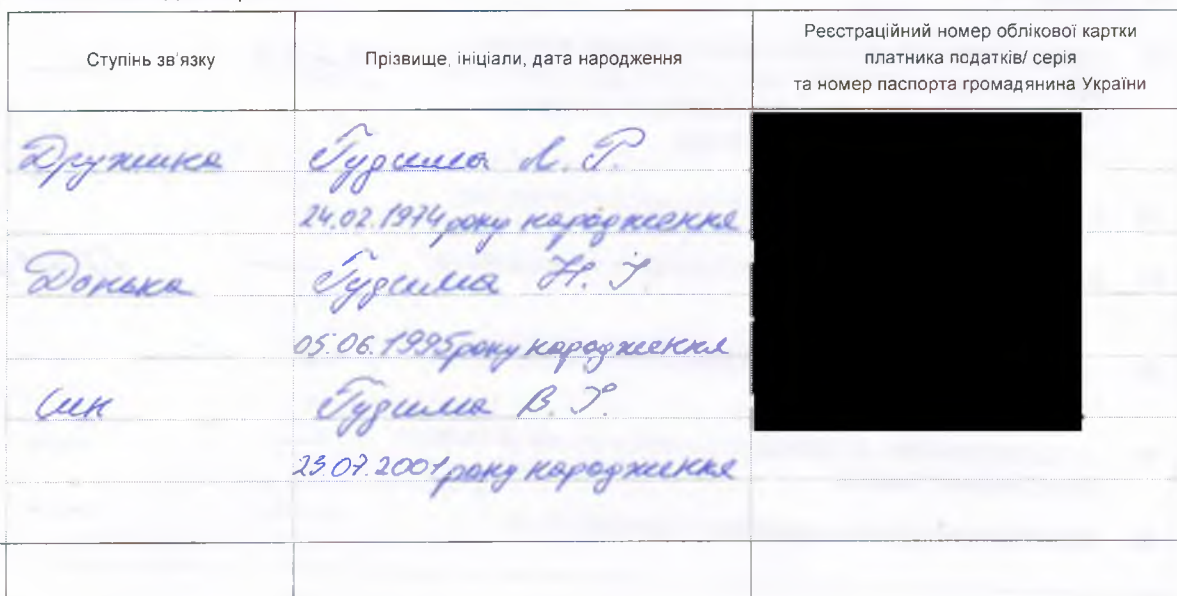 Ступінь зв'язку
Прізвище, ініціали, дата народження
Реєстраційний номер облікової картки
платника податків/ серія
та номер паспорта громадянина України
Дружина
Гудима Л. Р.
24.02.1974 року народження
Донька
Гудима Н. І.
05.06.1995 року народження
Син
Гудима В. І.
23.07.2001 року народження